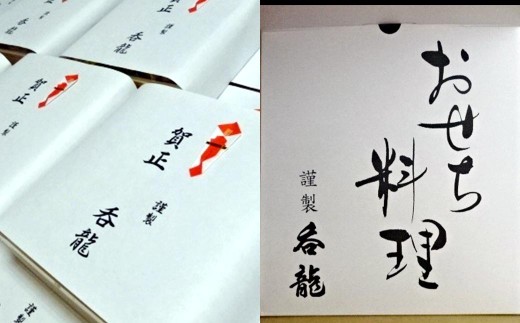 賀正
謹製
呑龍
賀正
謹製
呑龍
謹製
呑龍
謹製
おせち
料理
謹製
呑龍